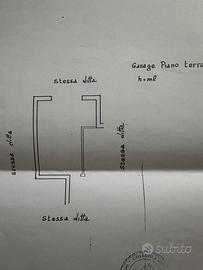 stessa ditta
Garage Piano terra
h=ml
stessa ditta
stessa ditta
stessa ditta
subito